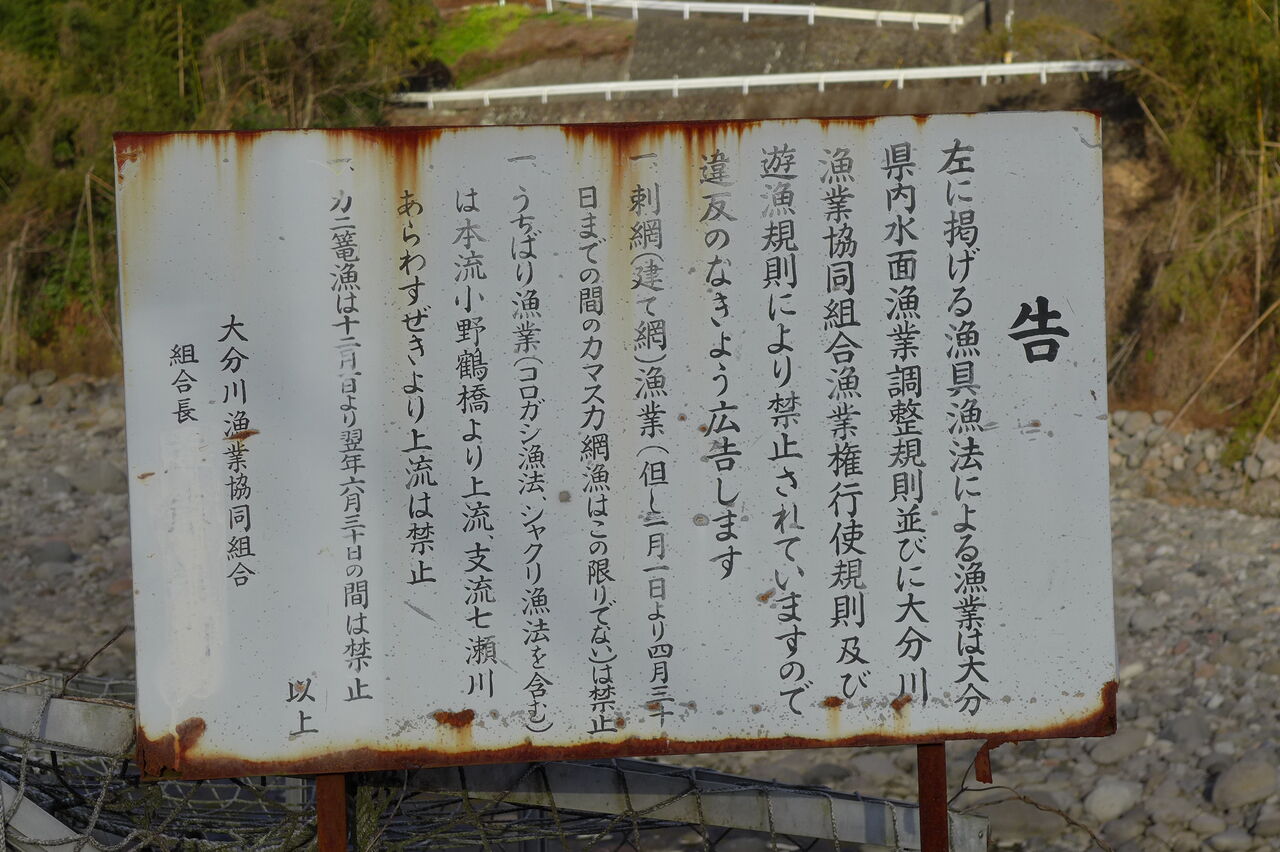 告
左に掲げる漁具漁法による漁業は大分
県内水面漁業調整規則並びに大分川
漁業協同組合漁業権行使規則及び
遊漁規則により禁止されていますので
違反のなきよう広告します
一、刺網(建て網)漁業(但し二月一日より四月三十
日までの間のカマスカ網漁はこの限りでない)は禁止
一、うちばり漁業(コロガシ漁法、シャクリ漁法を含む)
は本流小野鶴橋より上流、支流七瀬川
あらわすぜきより上流は禁止
一、カニ篭漁は十二月一日より翌年六月三十日の間は禁止
以上
大分川漁業協同組合
組合長